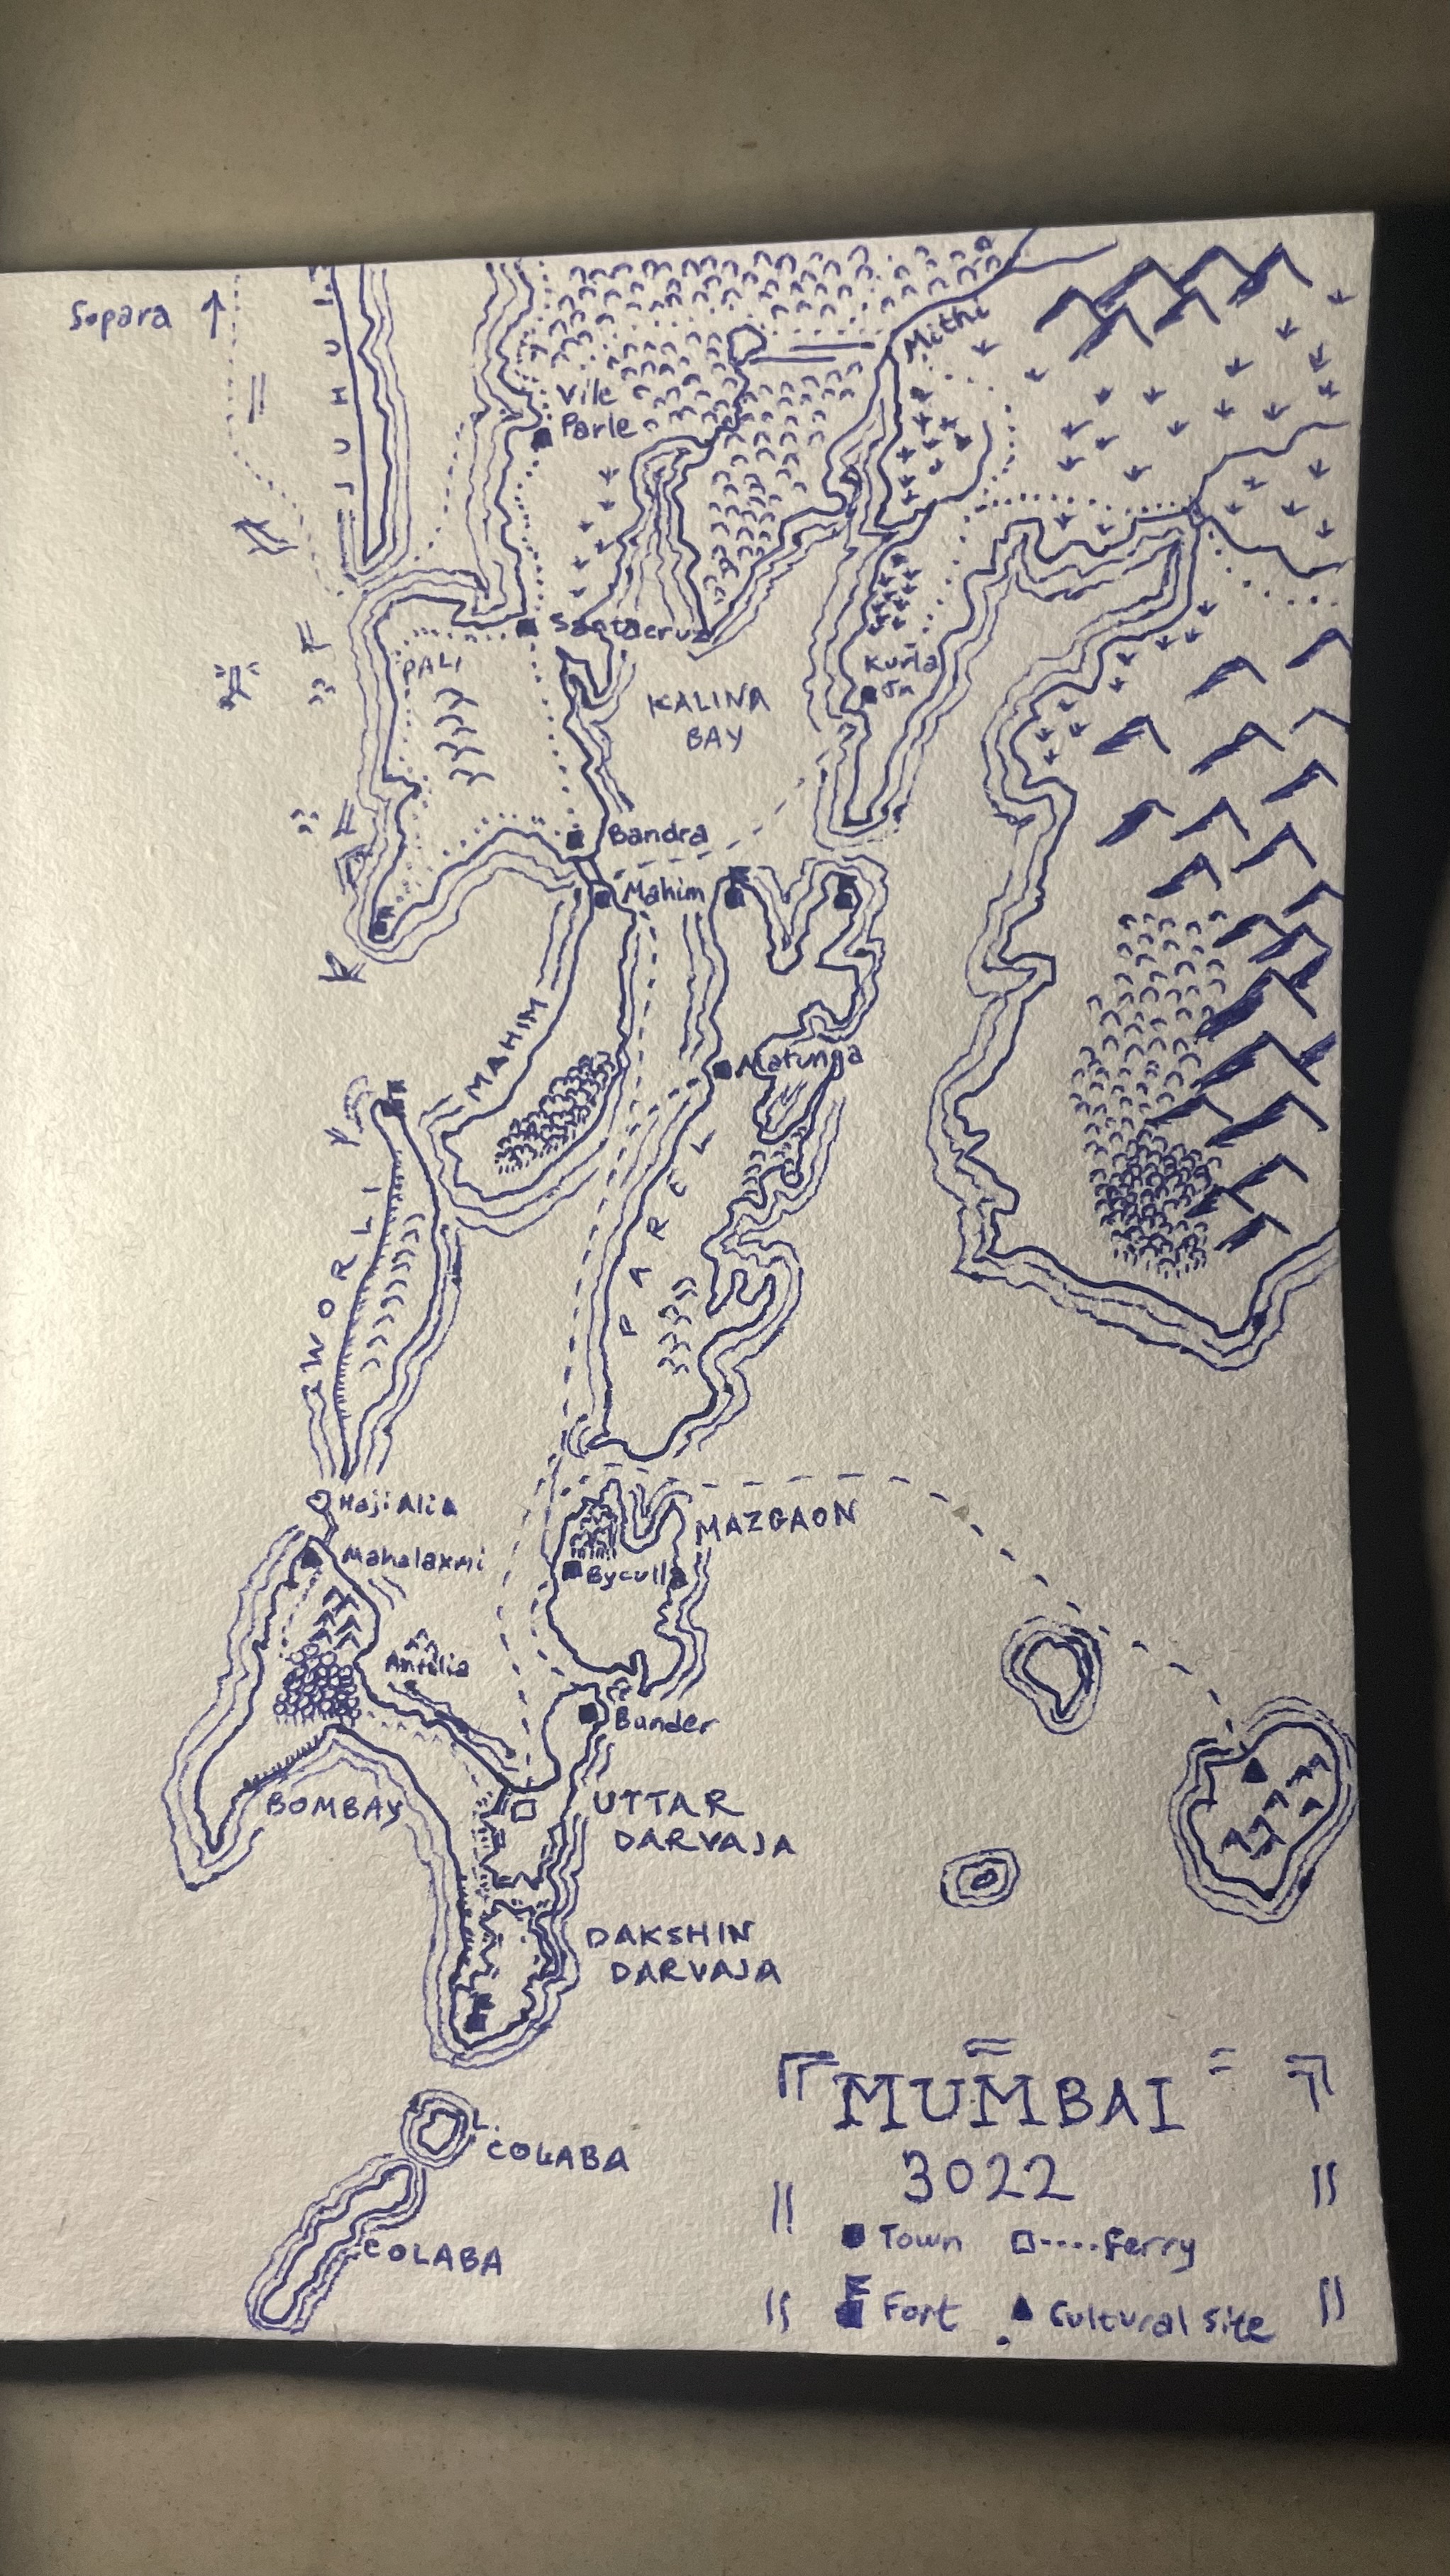 Sopara
JUHU
Mithi
Vile
Parle
Santacruz
PALI
KALINA
BAY
Kurla
Jn
Bandra
Mahim
MAHIM
Matunga
PAREL
WORLI
Haji Alia
Mahalaxmi
MAZGAON
Byculla
Antilia
Bunder
BOMBAY
UTTAR
DARVAJA
DAKSHIN
DARVAJA
L.
COLABA
COLABA
MUMBAI
3022
Town
Ferry
Fort
Cultural Site